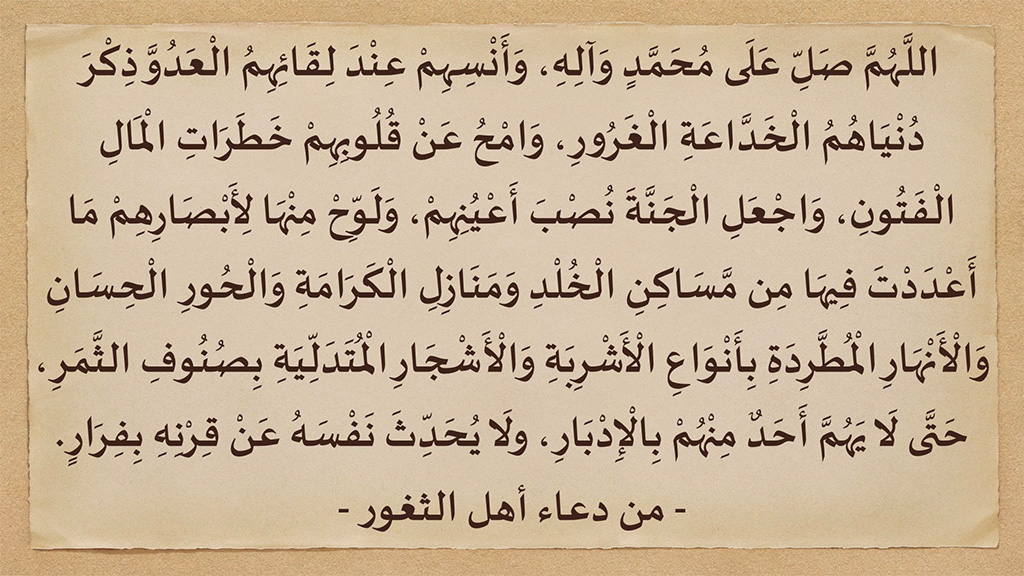 اللَّهُمَّ صَلِّ عَلَى مُحَمَّدٍ وَآلِهِ، وَأَنْسِهِمْ عِنْدَ لِقَائِهِمُ الْعَدُوَّ ذِكْرَ
دُنْيَاهُمُ الْخَدَّاعَةِ الْغَرُورِ، وَامْحُ عَنْ قُلُوبِهِمْ خَطَرَاتِ الْمَالِ
الْفَتُونِ، وَاجْعَلِ الْجَنَّةَ نُصْبَ أَعْيُنِهِمْ، وَلَوِّحْ مِنْهَا لِأَبْصَارِهِمْ مَا
أَعْدَدْتَ فِيهَا مِن مَّسَاكِنِ الْخُلْدِ وَمَنَازِلِ الْكَرَامَةِ وَالْحُورِ الْحِسَانِ
وَالْأَنْهَارِ الْمُطَّرِدَةِ بِأَنْوَاعِ الْأَشْرِبَةِ وَالْأَشْجَارِ الْمُتَدَلِّيَةِ بِصُنُوفِ الثَّمَرِ،
حَتَّى لَا يَهُمَّ أَحَدٌ مِنْهُمْ بِالْإِدْبَارِ، ولَا يُحَدِّثَ نَفْسَهُ عَنْ قِرْنِهِ بِفِرَارٍ.
- من دعاء أهل الثغور -